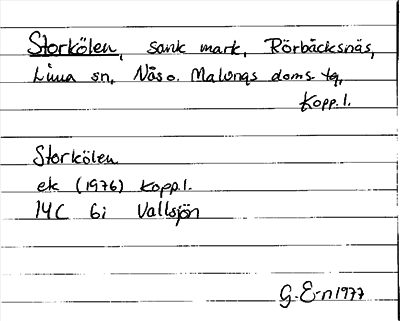 Storkölen, sank mark, Rörbäcksnäs,
Lima sn, Näs o. Malungs doms. tg,
Kopp. l.
Storkölen
ek (1976) Kopp. l.
14C 6i Vallsjön
G. E-n 1977